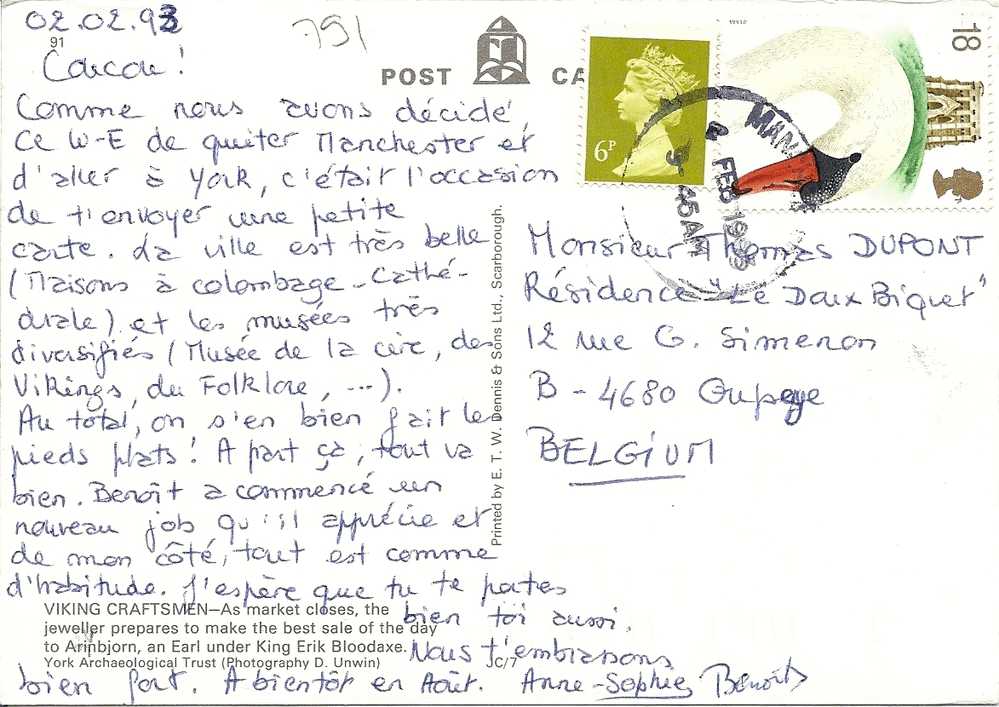 02.02.93
91
751
Coucou !
POST CA
6P
18
MAN
FEB 1993
9-45AM
Comme nous avons décidé,
ce W-E de quitter Manchester et
d'aller à York, c'était l'occasion
de t'envoyer une petite
carte. La ville est très belle
(Maisons à colombage - Cathé-
drale) et les musées très
diversifiés (Musée de la cire, des
Vikings, du Folklore, ...).
Au total, on s'en bien fait les
pieds plats ! A part ça, tout va
bien. Benoît a commencé un
nouveau job qu'il apprécie et
de mon côté, tout est comme
d'habitude. J'espère que tu te portes
bien toi aussi.
Nous t'embrassons
bien fort. A bientôt en Août. Anne-Sophie, Benoît
Monsieur Thomas DUPONT
Résidence "Le Doux Biquet"
12 rue G. Simenon
B - 4680 Oupeye
BELGIUM
Printed by E. T. W. Dennis & Sons Ltd., Scarborough.
VIKING CRAFTSMEN—As market closes, the
jeweller prepares to make the best sale of the day
to Arinbjorn, an Earl under King Erik Bloodaxe.
York Archaeological Trust (Photography D. Unwin)
JC/7